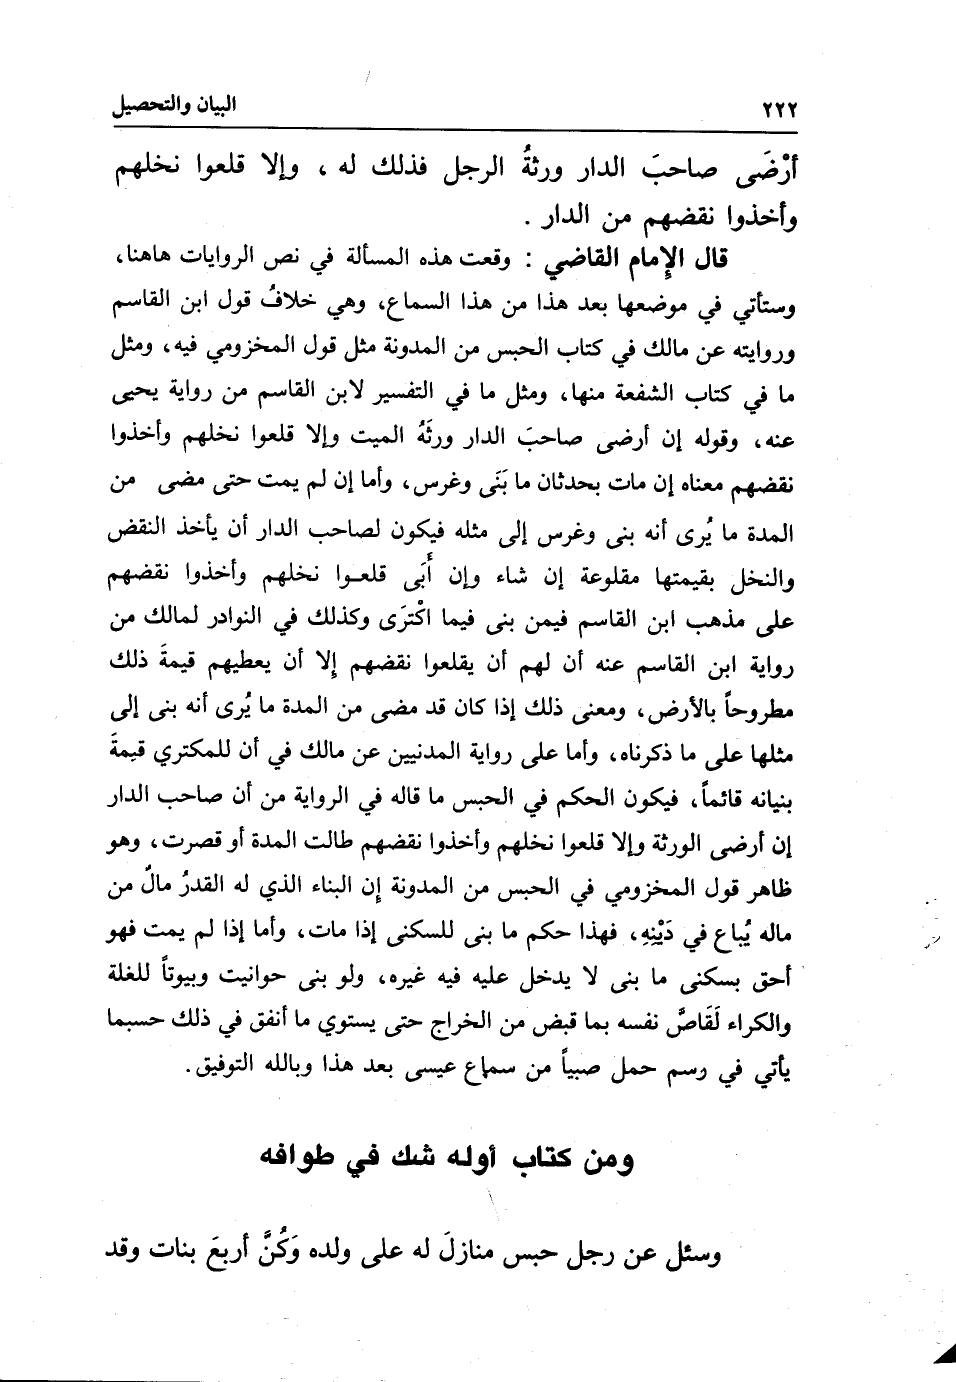 ٢٢٢ البيان والتحصيل
أرْضَى صاحبَ الدار ورثةُ الرجل فذلك له ، وإلا قلعوا نخلهم
وأخذوا نقضهم من الدار .
قال الإمام القاضي : وقعت هذه المسألة في نص الروايات هاهنا،
وستأتي في موضعها بعد هذا من هذا السماع، وهي خلافُ قول ابن القاسم
وروايته عن مالك في كتاب الحبس من المدونة مثل قول المخزومي فيه، ومثل
ما في كتاب الشفعة منها، ومثل ما في التفسير لابن القاسم من رواية يحيى
عنه، وقوله إن أرضى صاحبَ الدار ورثَهُ الميت وإلا قلعوا نخلهم وأخذوا
نقضهم معناه إن مات بحدثان ما بَنَى وغرس، وأما إن لم يمت حتى مضى من
المدة ما يُرى أنه بنى وغرس إلى مثله فيكون لصاحب الدار أن يأخذ النقض
والنخل بقيمتها مقلوعة إن شاء وإن أَبَى قلعوا نخلهم وأخذوا نقضهم
على مذهب ابن القاسم فيمن بنى فيما اكْترَى وكذلك في النوادر لمالك من
رواية ابن القاسم عنه أن لهم أن يقلعوا نقضهم إلا أن يعطيهم قيمةَ ذلك
مطروحاً بالأرض، ومعنى ذلك إذا كان قد مضى من المدة ما يُرى أنه بنى إلى
مثلها على ما ذكرناه، وأما على رواية المدنيين عن مالك في أن للمكتري قيمةَ
بنيانه قائماً، فيكون الحكم في الحبس ما قاله في الرواية من أن صاحب الدار
إن أرضى الورثة وإلا قلعوا نخلهم وأخذوا نقضهم طالت المدة أو قصرت، وهو
ظاهر قول المخزومي في الحبس من المدونة إن البناء الذي له القدرُ مالٌ من
ماله يُباع في دَيْنِهِ، فهذا حكم ما بنى للسكنى إذا مات، وأما إذا لم يمت فهو
أحق بسكنى ما بنى لا يدخل عليه فيه غيره، ولو بنى حوانيت وبيوتاً للغلة
والكراء لَقَاصَّ نفسه بما قبض من الخراج حتى يستوي ما أنفق في ذلك حسبما
يأتي في رسم حمل صبياً من سماع عيسى بعد هذا وبالله التوفيق.
ومن كتاب أوله شك في طوافه
وسئل عن رجل حبس منازلَ له على ولده وَكُنَّ أربعَ بنات وقد